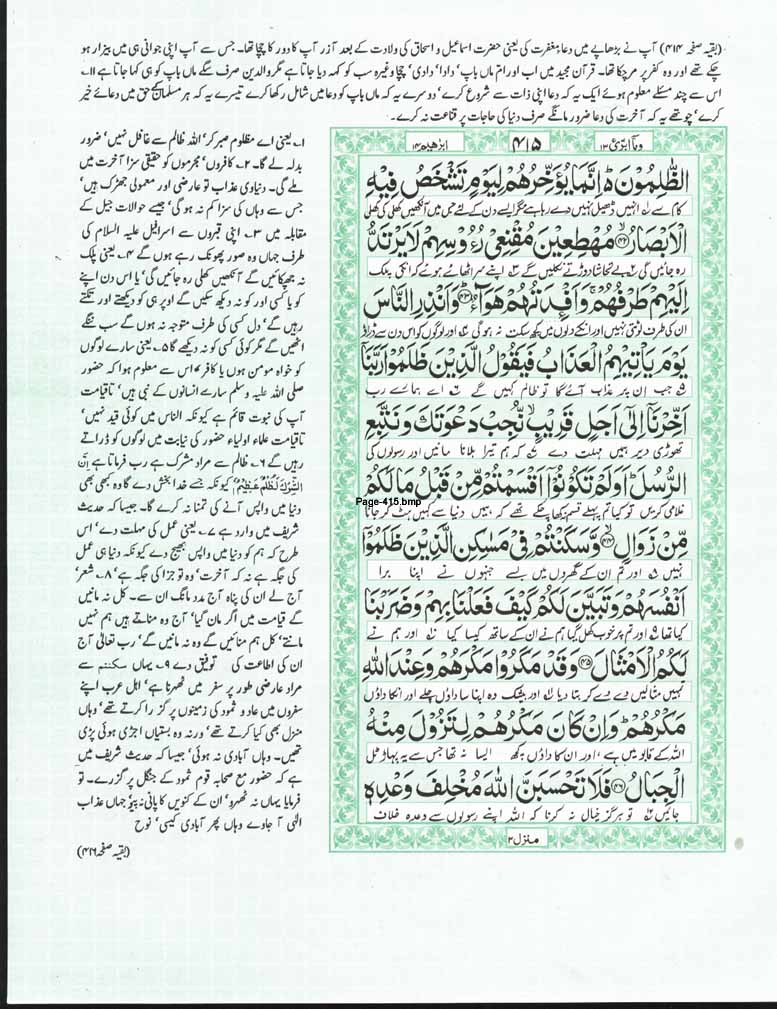 (بقیہ صفحہ ۴۱۴) آپ نے بڑھاپے میں دعاء مغفرت کی یعنی حضرت اسماعیل و اسحاق کی ولادت کے بعد آزر آپ کا دور کا چچا تھا۔ جس سے آپ اپنی جوانی ہی میں بیزار ہو
چکے تھے اور وہ کفر پر مرچکا تھا۔ قرآن مجید میں اب اور ام ماں باپ' دادا' دادی' چچا وغیرہ سب کو کہہ دیا جاتا ہے مگر والدین صرف سگے ماں باپ کو ہی کہا جاتا ہے ۱۱۔
اس سے چند مسئلے معلوم ہوئے ایک یہ کہ دعا اپنی ذات سے شروع کرے' دوسرے یہ کہ ماں باپ کو دعا میں شامل رکھا کرے تیسرے یہ کہ ہر مسلمان کے حق میں دعائے خیر
کرے' چوتھے یہ کہ آخرت کی دعا ضرور مانگے صرف دنیا کی حاجات پر قناعت نہ کرے۔
وما ابرئ ۱۳
۴۱۵
ابرٰهيم ۱۴
الظّٰلِمُوْنَ ؕ اِنَّمَا يُؤَخِّرُهُمْ لِيَوْمٍ تَشْخَصُ فِيْهِ
کام سے ۱؎ انہیں ڈھیل نہیں دے رہا ہے مگر ایسے دن کے لئے جس میں آنکھیں کھلی کی کھلی
الْاَبْصَارُ ﴿۴۲﴾ مُهْطِعِيْنَ مُقْنِعِيْ رُءُوْسِهِمْ لَا يَرْتَدُّ
رہ جائیں گی ۲؎ بے تحاشا دوڑتے نکلیں گے ۳؎ اپنے سر اٹھائے ہوئے کہ انکی پلک
اِلَيْهِمْ طَرْفُهُمْ ۚ وَاَفْـِٕدَتُهُمْ هَوَآءٌ ﴿۴۳﴾ وَاَنْذِرِ النَّاسَ
ان کی طرف لوٹتی نہیں اور انکے دلوں میں کچھ سکت نہ ہوگی ۴؎ اور لوگوں کو اس دن سے ڈراؤ
يَوْمَ يَاْتِيْهِمُ الْعَذَابُ فَيَقُوْلُ الَّذِيْنَ ظَلَمُوْا رَبَّنَاۤ
۵؎ جب ان پر عذاب آئے گا تو ظالم کہیں گے ۶؎ اے ہمارے رب
اَخِّرْنَاۤ اِلٰۤى اَجَلٍ قَرِيْبٍ ۙ نُّجِبْ دَعْوَتَكَ وَنَتَّبِعِ
تھوڑی دیر ہمیں مہلت دے ۷؎ کہ ہم تیرا بلانا مانیں اور رسولوں کی
الرُّسُلَ ؕ اَوَلَمْ تَكُوْنُوْۤا اَقْسَمْتُمْ مِّنْ قَبْلُ مَا لَكُمْ
Page-415.bmp
غلامی کریں تو کیا تم پہلے قسم نہ کھا چکے تھے کہ ہمیں دنیا سے کہیں ہٹ کر جانا
مِّنْ زَوَالٍ ﴿۴۴﴾ وَّسَكَنْتُمْ فِيْ مَسٰكِنِ الَّذِيْنَ ظَلَمُوْۤا
نہیں ۸؎ اور تم ان کے گھروں میں بسے جنہوں نے اپنا برا
اَنْفُسَهُمْ وَتَبَيَّنَ لَكُمْ كَيْفَ فَعَلْنَا بِهِمْ وَضَرَبْنَا
کیا تھا ۹؎ اور تم پر خوب کھل گیا ہم نے ان کے ساتھ کیسا کیا ۱۰؎ اور ہم نے
لَكُمُ الْاَمْثَالَ ﴿۴۵﴾ وَقَدْ مَكَرُوْا مَكْرَهُمْ وَعِنْدَ اللّٰهِ
تمہیں مثالیں دے دے کر بتا دیا ۱۱؎ اور بیشک وہ اپنا سا داؤں چلے اور انکا داؤں
مَكْرُهُمْ ؕ وَاِنْ كَانَ مَكْرُهُمْ لِتَزُوْلَ مِنْهُ
اللہ کے قابو میں ہے، اور ان کا داؤں کچھ ایسا نہ تھا جس سے یہ پہاڑ ٹل
الْجِبَالُ ﴿۴۶﴾ فَلَا تَحْسَبَنَّ اللّٰهَ مُخْلِفَ وَعْدِهٖ
جائیں تو ہرگز خیال نہ کرنا کہ اللہ اپنے رسولوں سے وعدہ خلاف
منزل ۳
۱۔ یعنی اے مظلوم صبر کر' اللہ ظالم سے غافل نہیں' ضرور
بدلہ لے گا۔ ۲۔ کافروں' مجرموں کو حقیقی سزا آخرت میں
ملے گی۔ دنیاوی عذاب تو عارضی اور معمولی جھڑک ہیں'
جس سے وہاں کی سزا کم نہ ہو گی' جیسے حوالات جیل کے
مقابلہ میں ۳۔ اپنی قبروں سے اسرافیل علیہ السلام کی
طرف جہاں وہ صور پھونک رہے ہوں گے ۴۔ یعنی پلک
نہ جھپکائیں گے آنکھیں کھلی رہ جائیں گی' یا اس دن اپنے
کو یا کسی اور کو نہ دیکھ سکیں گے اوپر ہی کو دیکھتے اور تکتے
رہیں گے' دل کسی کی طرف متوجہ نہ ہوں گے سب ننگے
اٹھیں گے مگر کوئی کسی کو نہ دیکھے گا ۵۔ یعنی سارے لوگوں
کو خواہ مومن ہوں یا کافر' اس سے معلوم ہوا کہ حضور
صلی اللہ علیہ وسلم سارے انسانوں کے نبی ہیں' تاقیامت
آپ کی نبوت قائم ہے کیونکہ الناس میں کوئی قید نہیں'
تاقیامت علماء اولیاء حضور کی نیابت میں لوگوں کو ڈراتے
رہیں گے ۶۔ ظالم سے مراد مشرک ہے رب فرماتا ہے اِنَّ
الشِّرْكَ لَظُلْمٌ عَظِيْمٌ' کیونکہ جسے خدا بخش دے گا وہ کبھی بھی
دنیا میں واپس آنے کی تمنا نہ کرے گا۔ جیسا کہ حدیث
شریف میں وارد ہے ۷۔ یعنی عمل کی مہلت دے' اس
طرح کہ ہم کو دنیا میں واپس بھیج دے کیونکہ دنیا ہی عمل
کی جگہ ہے نہ کہ آخرت' وہ تو جزا کی جگہ ہے' ۸۔ شعر'
آج لے ان کی پناہ آج مدد مانگ ان سے۔ کل نہ مانیں
گے قیامت میں اگر مان گیا' آج وہ مناتے ہیں ہم نہیں
مانتے' کل ہم منائیں گے وہ نہ مانیں گے' رب تعالٰی آج
ان کی اطاعت کی توفیق دے ۹۔ یہاں سکنتم سے
مراد عارضی طور پر سفر میں ٹھہرنا ہے' اہل عرب اپنے
سفروں میں عاد و ثمود کی زمینوں پر گزرا کرتے تھے' وہاں
منزل بھی کیا کرتے تھے' ورنہ وہ بستیاں اجڑی ہوئی پڑی
تھیں۔ وہاں آبادی نہ ہوئی' جیسا کہ حدیث شریف میں
ہے کہ حضور مع صحابہ قوم ثمود کے جنگل پر گزرے۔ تو
فرمایا یہاں نہ ٹھہرو' ان کے کنویں کا پانی نہ پیو' جہاں عذاب
الٰہی آ جاوے وہاں پھر آبادی کیسی' نوح
(بقیہ صفحہ ۴۱۶)